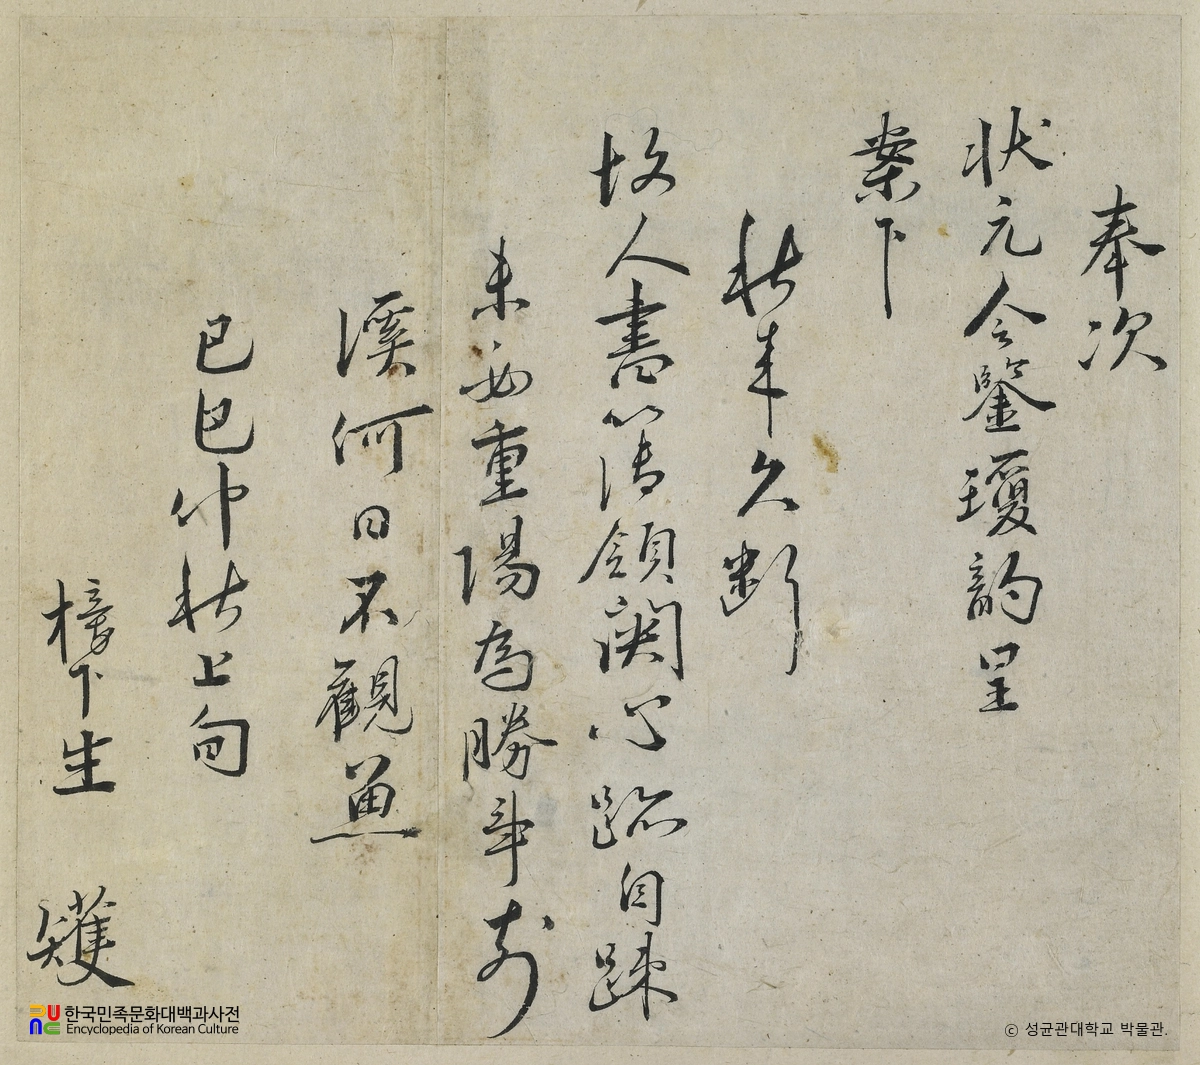 奉次
状元令鑒瓊韵呈
案下
秋来久断
故人書簿領関心跡自疎
未必重陽為勝事前
溪何日不觀魚
己巳仲秋上旬
榜下生 矱
한국민족문화대백과사전
Encyclopedia of Korean Culture
© 성균관대학교 박물관.